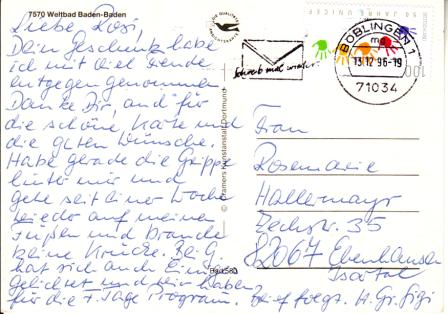 7570 Weltbad Baden-Baden
Liebe Rosi,
Dein Geschenk habe
ich mit viel Freude
entgegen genommen.
Danke Dir, und für
die schöne Karte und
die guten Wünsche.
Habe gerade die Grippe
hinter mir und
gehe seit einer Woche
wieder auf meinen
Füßen und brauche
keine Krücke. Bei G.
hat sich auch Einiges
gelichtet und wir haben
für die 7. Tage Program.
© Cramers Kunstanstalt, Dortmund
Bad 580
Schreib mal wieder.
100
BÖBLINGEN 1
mg
13.12.96-19
71034
Frau
Rosemarie
Hallermayr
Zechstr. 35
82067 Ebenhausen
Isartal
Brief folgt. H. Gr. Gigi